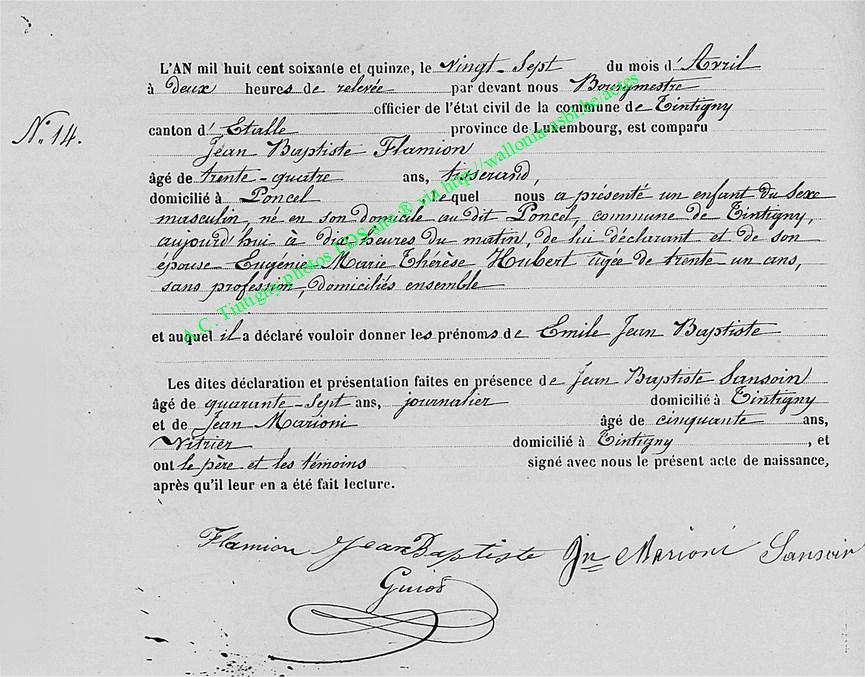 L'AN mil huit cent soixante et quinze, le Vingt-Sept du mois d'Avril
à deux heures de relevée par devant nous Bourgmestre
officier de l'état civil de la commune de Tintigny
N° 14.
canton d'Etalle province de Luxembourg, est comparu
Jean Baptiste Flamion
âgé de trente-quatre ans, tisserand,
domicilié à Poncel lequel nous a présenté un enfant du sexe
masculin, né en son domicile au dit Poncel, commune de Tintigny,
aujourd'hui à dix heures du matin, de lui déclarant et de son
épouse Eugénie-Marie Thérèse Hubert agée de trente un ans,
sans profession, domiciliés ensemble
et auquel il a déclaré vouloir donner les prénoms de Emile Jean Baptiste
Les dites déclaration et présentation faites en présence de Jean Baptiste Sansoin
âgé de quarante-sept ans, journalier domicilié à Tintigny
et de Jean Marioni âgé de cinquante ans,
Vitrier domicilié à Tintigny, et
ont le père et les témoins signé avec nous le présent acte de naissance,
après qu'il leur en a été fait lecture.
Flamion Jean Baptiste Jn Marioni Sansoin
A.C. Tintigny photos LDS site ® via http://wallonia.asbl.be/actes